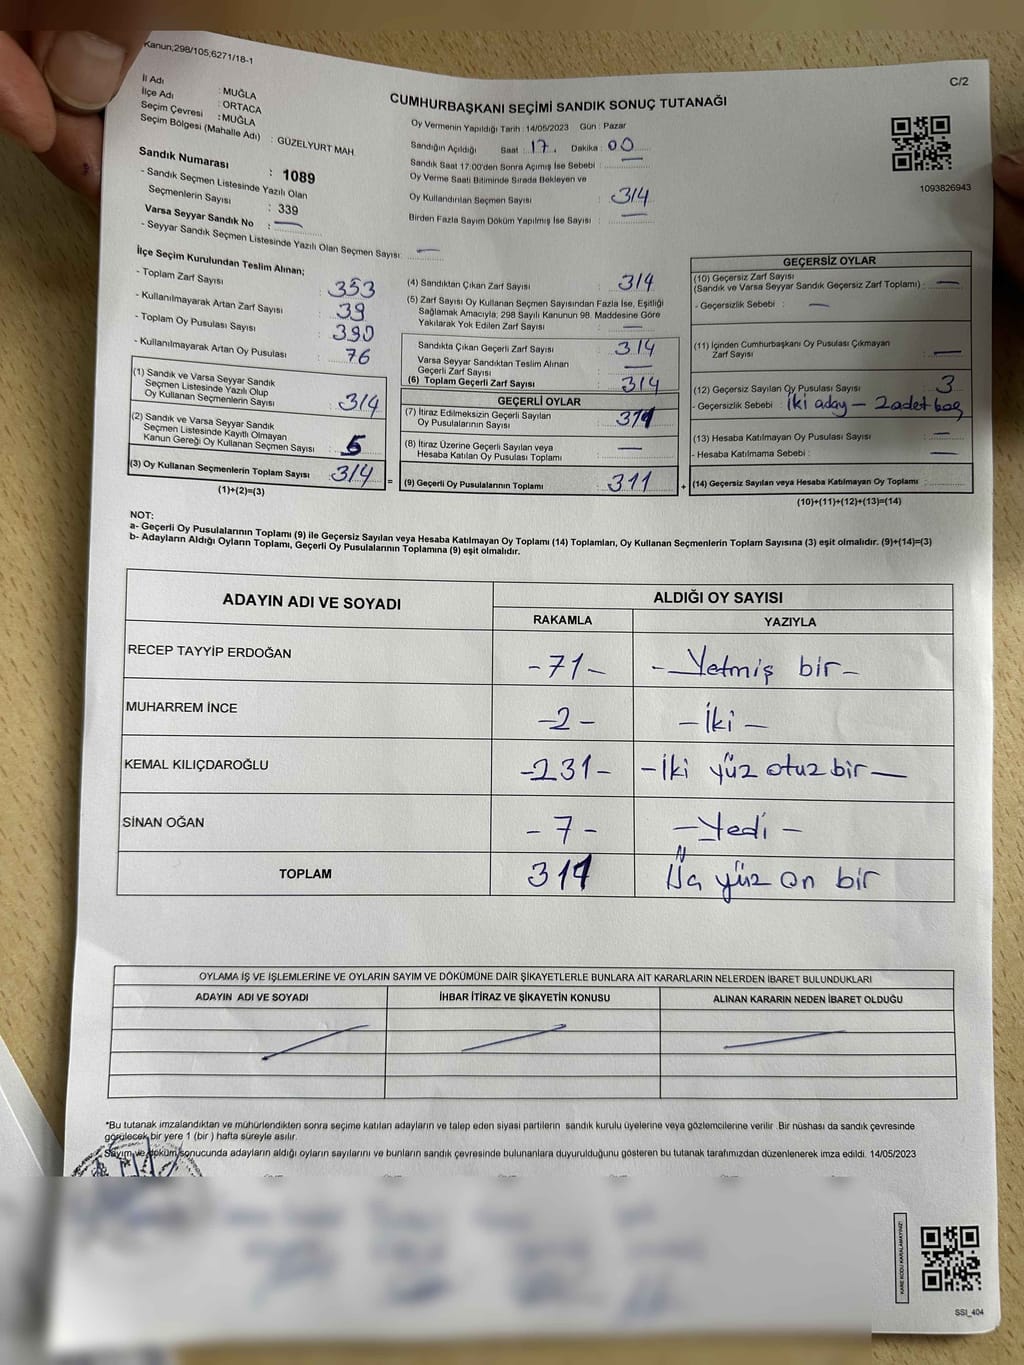 Kanun;298/105;6271/18-1
C/2
İl Adı : MUĞLA
İlçe Adı : ORTACA
Seçim Çevresi : MUĞLA
Seçim Bölgesi (Mahalle Adı) : GÜZELYURT MAH.
Sandık Numarası : 1089
- Sandık Seçmen Listesinde Yazılı Olan
Seçmenlerin Sayısı : 339
Varsa Seyyar Sandık No : —
- Seyyar Sandık Seçmen Listesinde Yazılı Olan Seçmen Sayısı: —
CUMHURBAŞKANI SEÇİMİ SANDIK SONUÇ TUTANAĞI
Oy Vermenin Yapıldığı Tarih : 14/05/2023 Gün : Pazar
Sandığın Açıldığı Saat : 17 . Dakika : 00
Sandık Saat 17:00'den Sonra Açımış İse Sebebi : —
Oy Verme Saati Bitiminde Sırada Bekleyen ve
Oy Kullandırılan Seçmen Sayısı : 314
Birden Fazla Sayım Döküm Yapılmış İse Sayısı : —
1093826943
İlçe Seçim Kurulundan Teslim Alınan;
- Toplam Zarf Sayısı : 353
- Kullanılmayarak Artan Zarf Sayısı : 39
- Toplam Oy Pusulası Sayısı : 390
- Kullanılmayarak Artan Oy Pusulası : 76
(1) Sandık ve Varsa Seyyar Sandık
Seçmen Listesinde Yazılı Olup
Oy Kullanan Seçmenlerin Sayısı : 314
(2) Sandık ve Varsa Seyyar Sandık
Seçmen Listesinde Kayıtlı Olmayan
Kanun Gereği Oy Kullanan Seçmen Sayısı : 5
(3) Oy Kullanan Seçmenlerin Toplam Sayısı : 314 =
(1)+(2)=(3)
(4) Sandıktan Çıkan Zarf Sayısı : 314
(5) Zarf Sayısı Oy Kullanan Seçmen Sayısından Fazla İse, Eşitliği
Sağlamak Amacıyla; 298 Sayılı Kanunun 98. Maddesine Göre
Yakılarak Yok Edilen Zarf Sayısı : —
Sandıkta Çıkan Geçerli Zarf Sayısı : 314
Varsa Seyyar Sandıktan Teslim Alınan
Geçerli Zarf Sayısı : —
(6) Toplam Geçerli Zarf Sayısı : 314
GEÇERLİ OYLAR
(7) İtiraz Edilmeksizin Geçerli Sayılan
Oy Pusulalarının Sayısı : 311
(8) İtiraz Üzerine Geçerli Sayılan veya
Hesaba Katılan Oy Pusulası Toplamı : —
(9) Geçerli Oy Pusulalarının Toplamı : 311 +
GEÇERSİZ OYLAR
(10) Geçersiz Zarf Sayısı
(Sandık ve Varsa Seyyar Sandık Geçersiz Zarf Toplamı) : —
- Geçersizlik Sebebi : —
(11) İçinden Cumhurbaşkanı Oy Pusulası Çıkmayan
Zarf Sayısı : —
(12) Geçersiz Sayılan Oy Pusulası Sayısı : 3
- Geçersizlik Sebebi : İki aday — 2 adet boş
(13) Hesaba Katılmayan Oy Pusulası Sayısı : —
- Hesaba Katılmama Sebebi : —
(14) Geçersiz Sayılan veya Hesaba Katılmayan Oy Toplamı :
(10)+(11)+(12)+(13)=(14)
NOT:
a- Geçerli Oy Pusulalarının Toplamı (9) ile Geçersiz Sayılan veya Hesaba Katılmayan Oy Toplamı (14) Toplamları, Oy Kullanan Seçmenlerin Toplam Sayısına (3) eşit olmalıdır. (9)+(14)=(3)
b- Adayların Aldığı Oyların Toplamı, Geçerli Oy Pusulalarının Toplamına (9) eşit olmalıdır.
ADAYIN ADI VE SOYADI
ALDIĞI OY SAYISI
RAKAMLA YAZIYLA
RECEP TAYYİP ERDOĞAN -71- - Yetmiş bir -
MUHARREM İNCE -2- - İki -
KEMAL KILIÇDAROĞLU -231- - İki yüz otuz bir —
SİNAN OĞAN -7- - Yedi -
TOPLAM 311 Üç yüz on bir
OYLAMA İŞ VE İŞLEMLERİNE VE OYLARIN SAYIM VE DÖKÜMÜNE DAİR ŞİKAYETLERLE BUNLARA AİT KARARLARIN NELERDEN İBARET BULUNDUKLARI
ADAYIN ADI VE SOYADI İHBAR İTİRAZ VE ŞİKAYETİN KONUSU ALINAN KARARIN NEDEN İBARET OLDUĞU
*Bu tutanak imzalandıktan ve mühürlendikten sonra seçime katılan adayların ve talep eden siyasi partilerin sandık kurulu üyelerine veya gözlemcilerine verilir Bir nüshası da sandık çevresinde
görülecek bir yere 1 (bir ) hafta süreyle asılır.
Sayım ve döküm sonucunda adayların aldığı oyların sayılarını ve bunların sandık çevresinde bulunanlara duyurulduğunu gösteren bu tutanak tarafımızdan düzenlenerek imza edildi. 14/05/2023
KARE KODU KARALAMAYINIZ!
SSİ_404